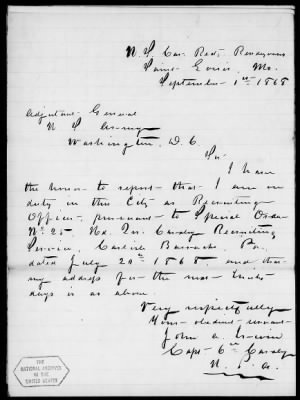 U. S. Cav. Rect. Rendezvous
Saint Louis, Mo.
September 1st 1868
Adjutant General
U. S. Army
Washington, D. C.
Sir
I have
the honor to report that I am on
duty in this City as Recruiting
Officer, pursuant to Special Order
No 25. Hd. Qrs. Cavalry Recruiting
Service, Carlisle Barracks, Pa.
dated July 20th 1868. and that
my address for the next thirty
days is as above
Very respectfully
Your obedient servant
John A. Irwin
Capt 6th Cavalry
U. S. A.
THE
NATIONAL ARCHIVES
OF THE
UNITED STATES